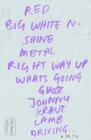 RED
BIG WHITE N.
SHINE
METAL
RIGHT WAY UP
WHATS GOING
GHOST
JOHNNY
KRAUT
LAMB
DRIVING.